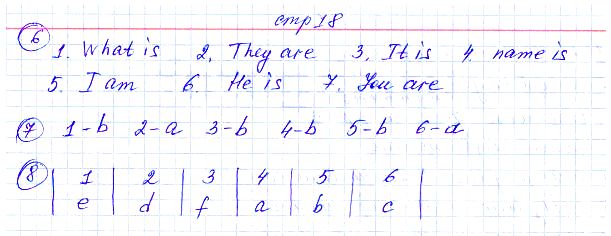 стр 18
6 1. What is 2. They are 3. It is 4. name is
5. I am 6. He is 7. You are
7 1-b 2-a 3-b 4-b 5-b 6-a
8 | 1 | 2 | 3 | 4 | 5 | 6 |
| e | d | f | a | b | c |